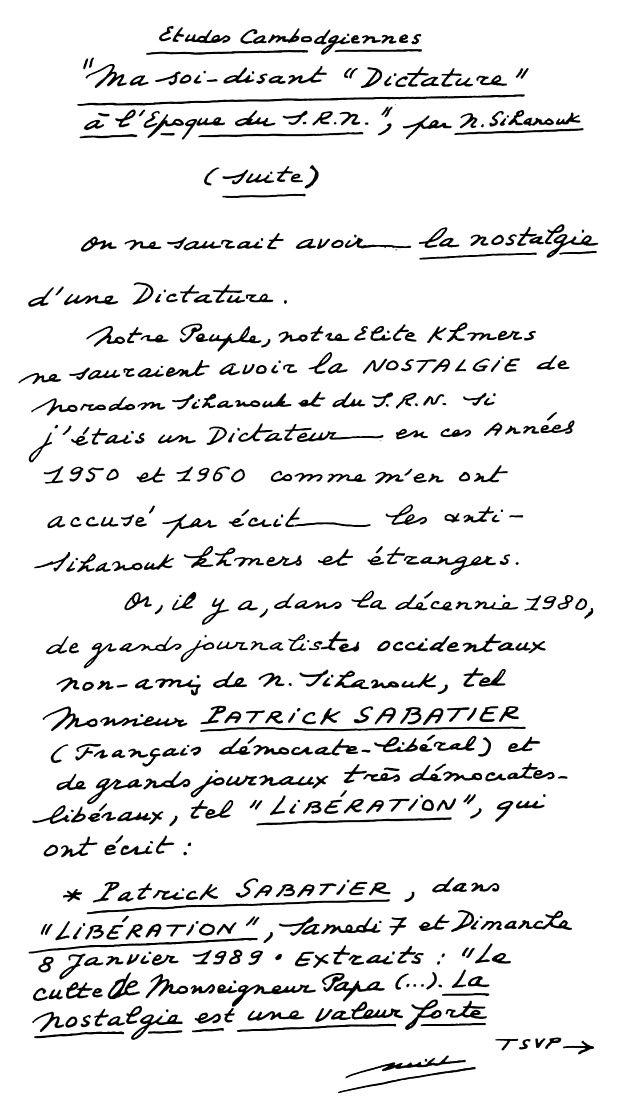 Etudes Cambodgiennes
"Ma soi-disant "Dictature"
à l'Epoque du S.R.N.", par N. Sihanouk
(suite)
On ne saurait avoir la nostalgie
d'une Dictature.
Notre Peuple, notre Elite Khmers
ne sauraient avoir la NOSTALGIE de
Norodom Sihanouk et du S.R.N. si
j'étais un Dictateur en ces Années
1950 et 1960 comme m'en ont
accusé par écrit les anti-
Sihanouk khmers et étrangers.
Or, il y a, dans la décennie 1980,
de grands journalistes occidentaux
non-amis de N. Sihanouk, tel
Monsieur PATRICK SABATIER
(Français démocrate-libéral) et
de grands journaux très démocrates-
libéraux, tel "LIBÉRATION", qui
ont écrit :
* Patrick SABATIER, dans
"LIBÉRATION", Samedi 7 et Dimanche
8 Janvier 1989. Extraits : "Le
culte de Monseigneur Papa (...). La
nostalgie est une valeur forte
TSVP →